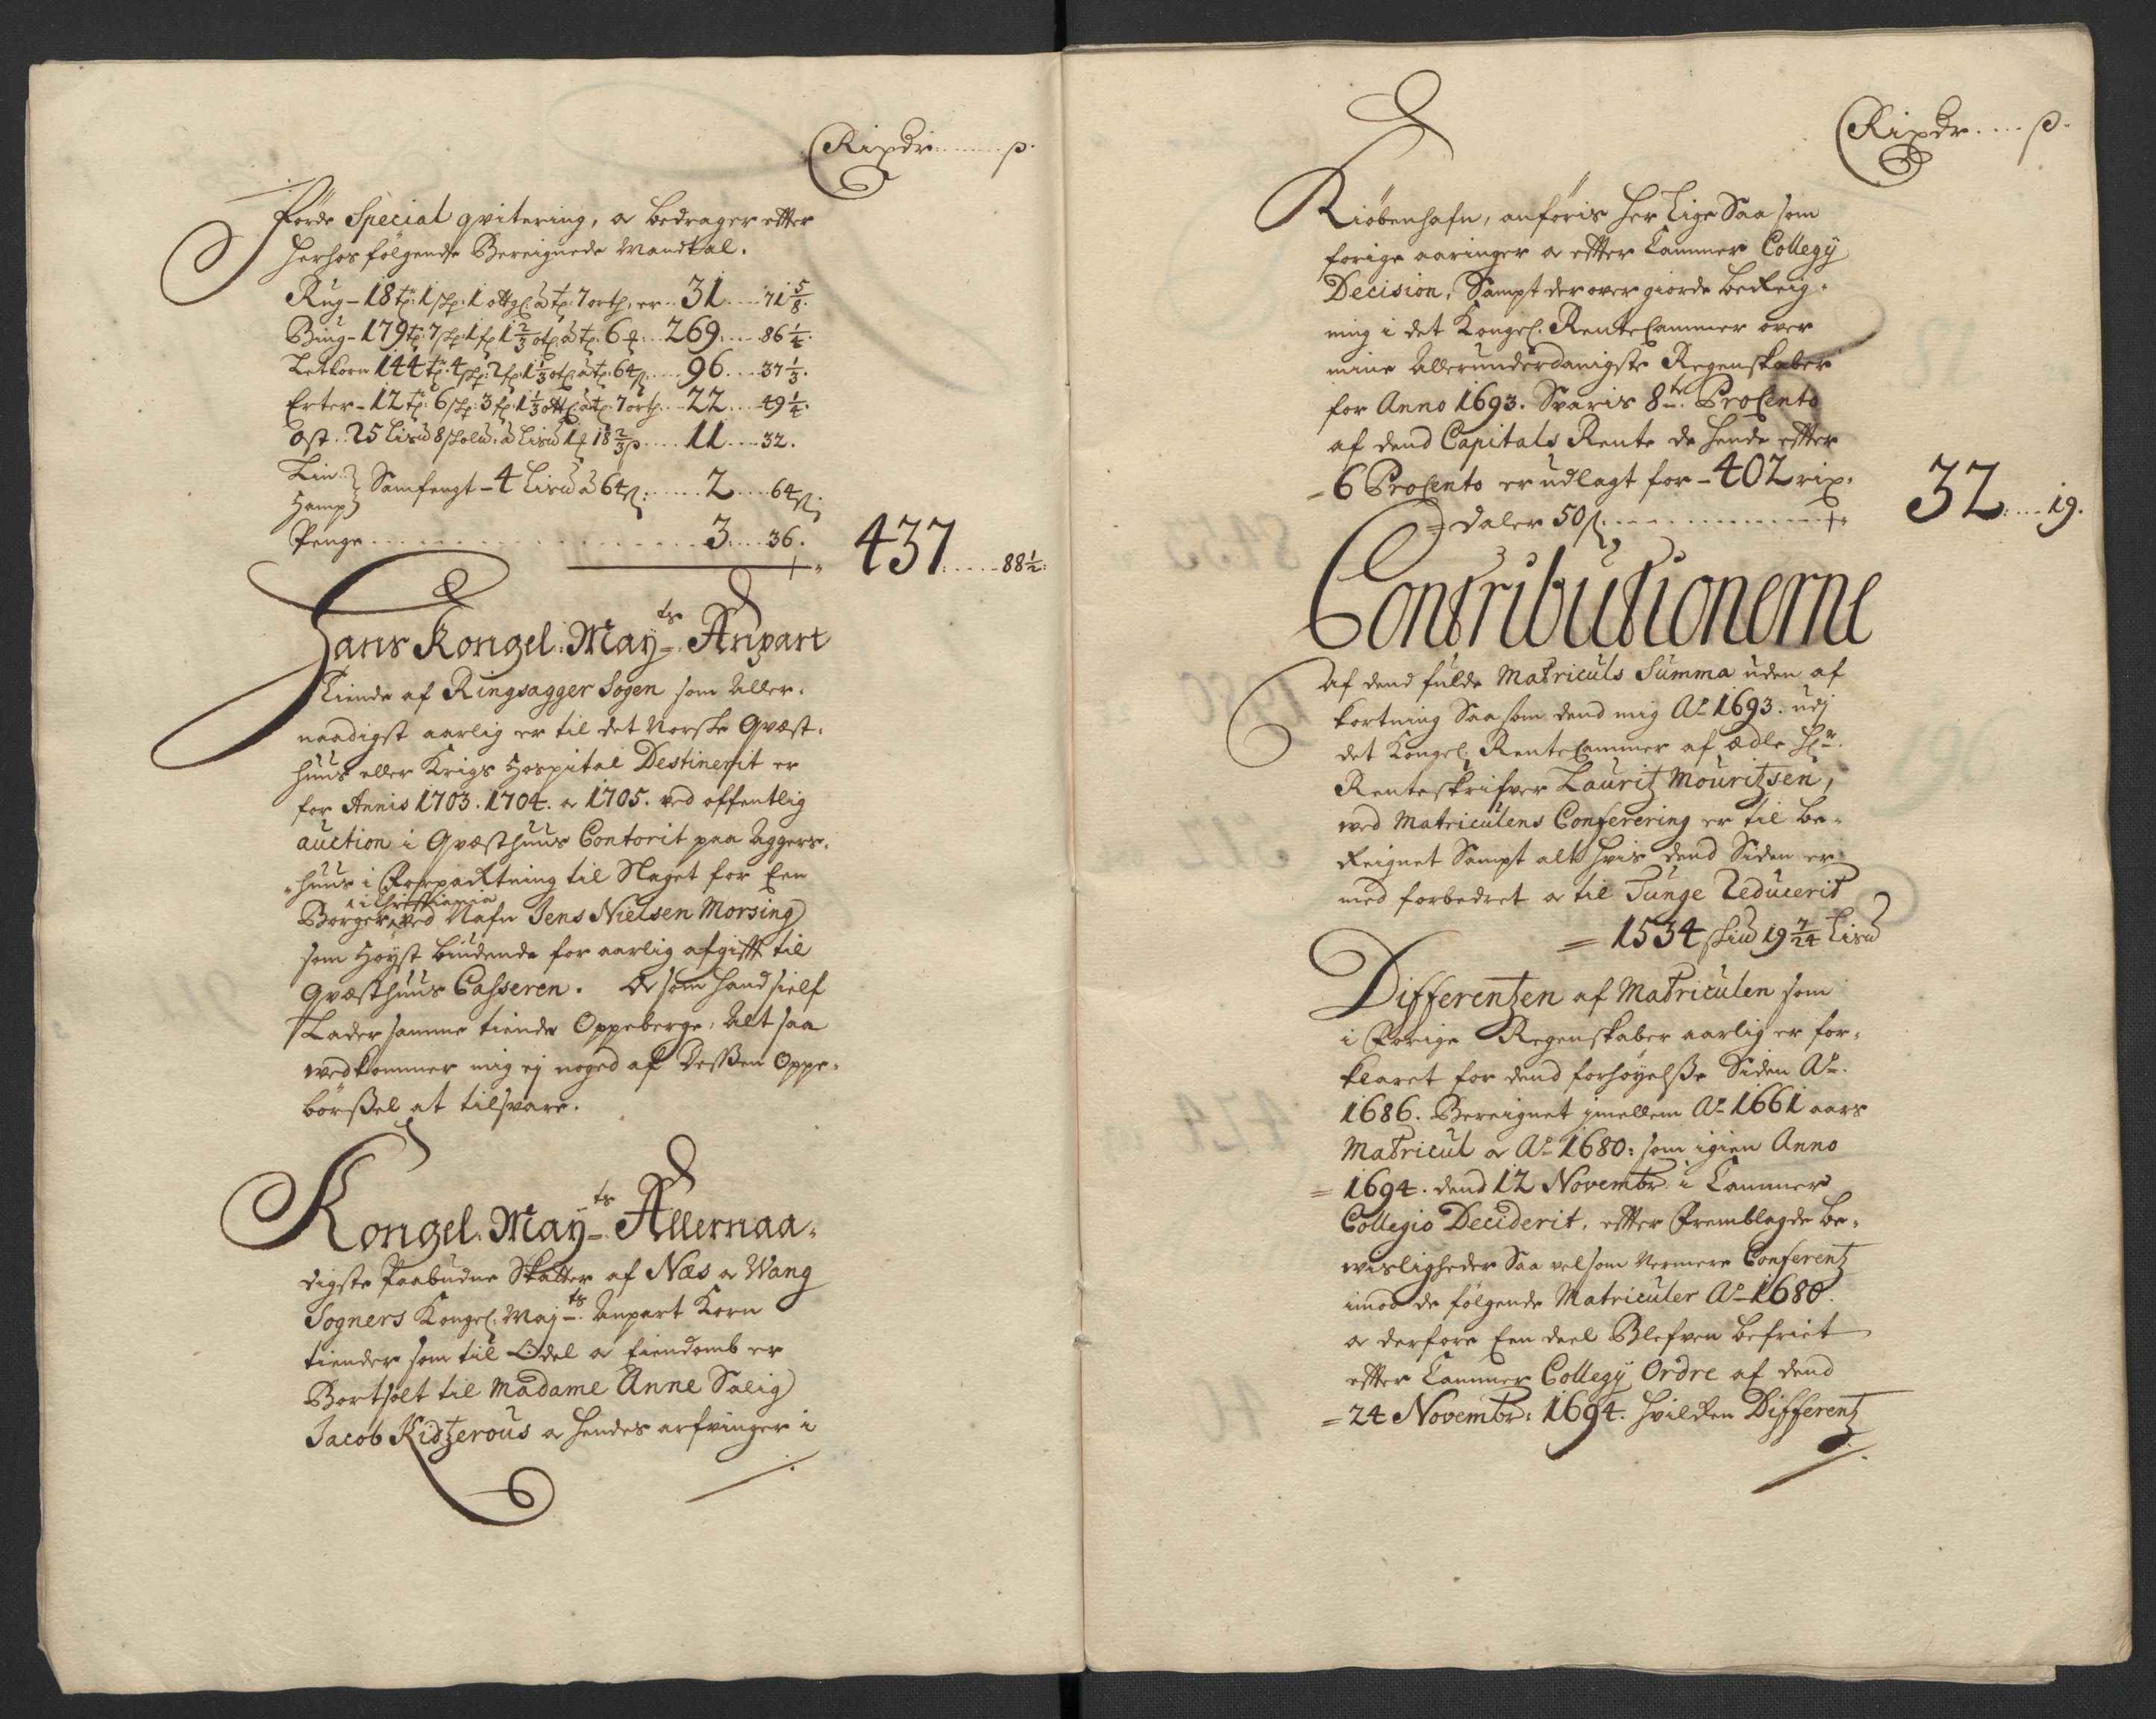 Rixdr: ...... ß.
förde Special qvitering, a bedrager effter
herhos følgende Bereignede Mandtal.
Rug - 18 tr: 1 skp: 1 ottgl: a tr: 7 orth, er .. 31 .... 71 5/8.
Biug - 179 tr: 7 skp: 1 fr 1 2/3 otl: a tr: 6 ... 269 .... 86 1/4.
Letkorn 144 tr: 4 skp: 2 fr: 1 1/3 otl: a tr: 64 ß .... 96 .... 37 1/3.
Erter - 12 tr: 6 skp: 3 fr: 1 1/3 ottl: a tr: 7 orth .. 22 .... 49 1/4.
Ost .. 25 Lisu 8 skolu: a Lisu 1 18 2/3 ß .... 11 .... 32.
Lin ..
Hamp Samfengt - 4 Lisu a 64 ß: ..... 2 .... 64 ß;
Penge .................. 3 .... 36.
437 ..... 88 1/2:
Hans Kongel. Mayts. Anpart
Tiende af Ringsagger Sogen som Aller-
naadigst aarlig er til det Norske Qvæst-
huus eller Krigs Hospital Destinerit er
for Annis 1703. 1704. a 1705. ved offentlig
auction i Qvæsthuus Contorit paa Aggers-
huus i Forpacktning til Slaget for Een
i Christiania
Borger, ved Nafn Jens Nielsen Morsing
som Høyst biudende for aarlig afgifft til
Qvæsthuus Casseren. Og som hand sielf
Lader samme tiende Oppeberge, Alt saa
vedkommer mig ej noged af Dessen Oppe-
børßel at tilsvare.
Kongel. Mayts. Allernaa-
digste Paabudne Skatter af Næs a Wang
Sogners Kongel. Majts. Anpart Korn
tiender som til Odel a Eiendomb er
Bortsolt til Madame Anne Salig
Jacob Ridtzerous a hendes arfvinger i
Rixdr .... ß.
Kiöbenhafn, anføris her Lige Saa som
forige aaringer a effter Cammer Collegÿ
Decision, Sampt der over giorde beReig-
ning i det Kongel. RenteCammer over
mine Allerunderdanigste Regenskaber
for Anno 1693. Svaris 8te. ProCento
af dend Capitals Rente de hende effter
6 ProCento er udlagt for - 402 rix-
daler 50 ß ............
32 .... 19.
Contributionerne
Af dend fulde Matriculs Summa uden af
kortning Saa som dend mig Ao 1693. udj
det Kongel. RenteCammer af ædle Hr.
Renteskrifver Lauritz Mouritzsen,
ved Matriculens Conferering er til be-
Reignet Sampt alt hvis dend Siden er
med forbedret a til Tunge Reducerit
= 1534 skiu 19 7/24 Lisu
Differentzen af Matriculen som
i Forige Regenskaber aarlig er for-
klaret for dend forhøyelsße Siden Ao.
1686. Bereignet jmellem Ao 1661 aars
Matricul a Ao 1680: som igien Anno
= 1694. dend 12 Novembr: i Cammer
Collegio Deciderit, effter Fremblagde be-
visligheder Saa vel som Nermere Conferentz
imod de følgende Matriculer Ao 1680.
a derfore Een deel Blefven befriet
effter Cammer Collegÿ Ordre af dend
= 24 Novembr: 1694. hvilcken Differentz